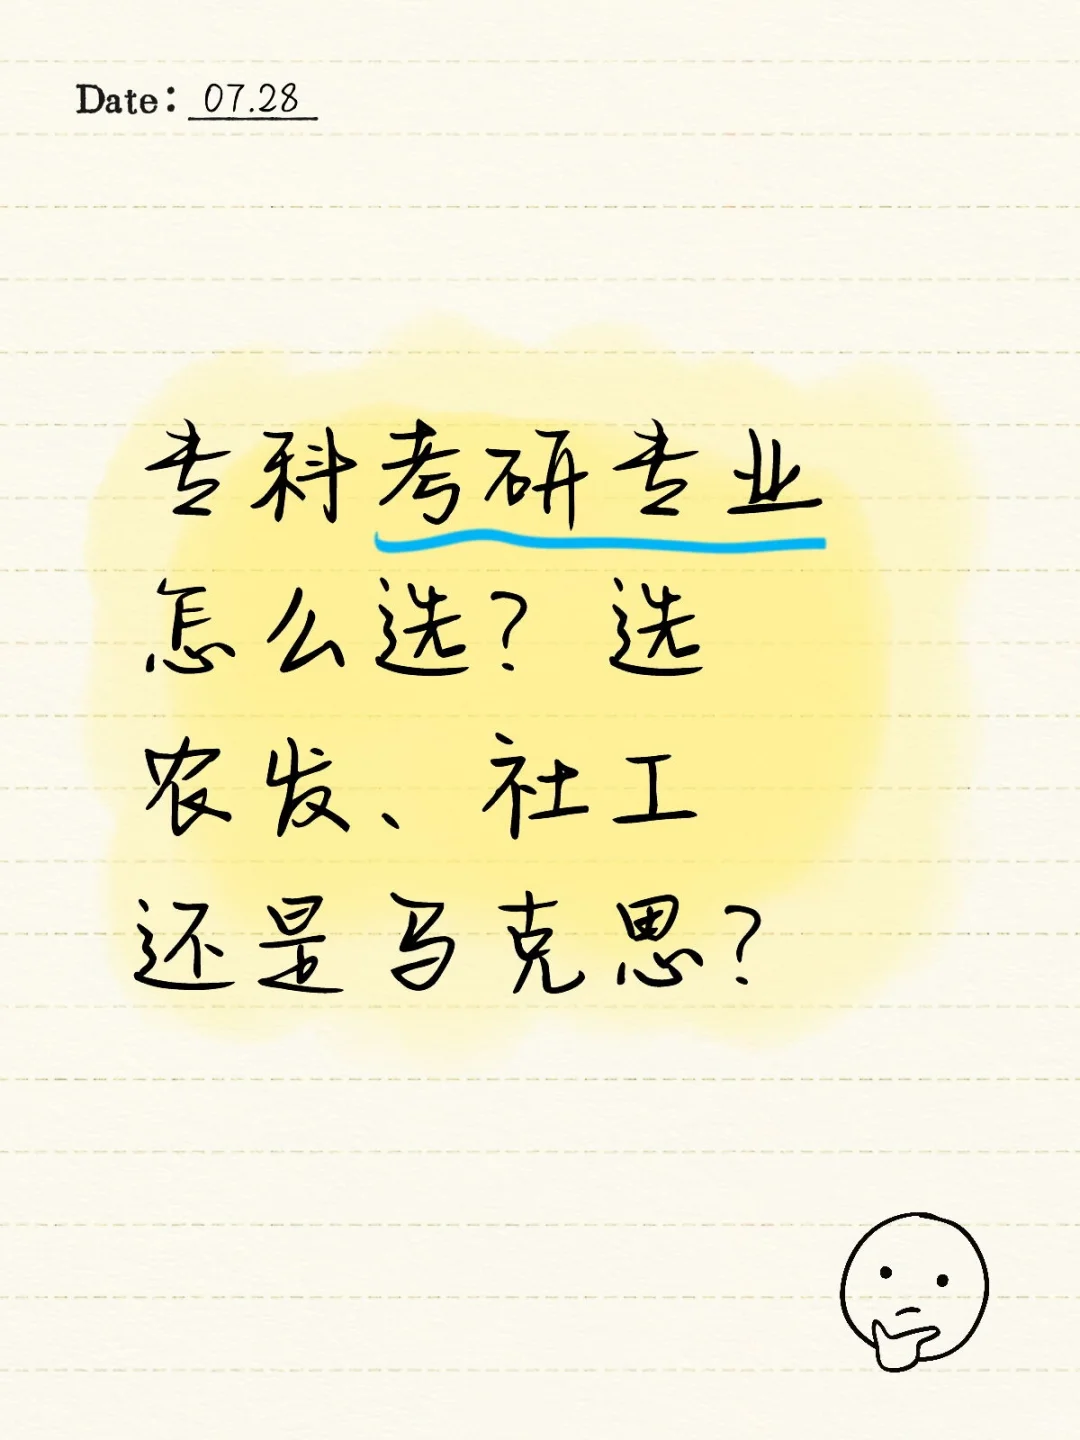 Date: 07.28
专科考研专业
怎么选？选
农发、社工
还是马克思？